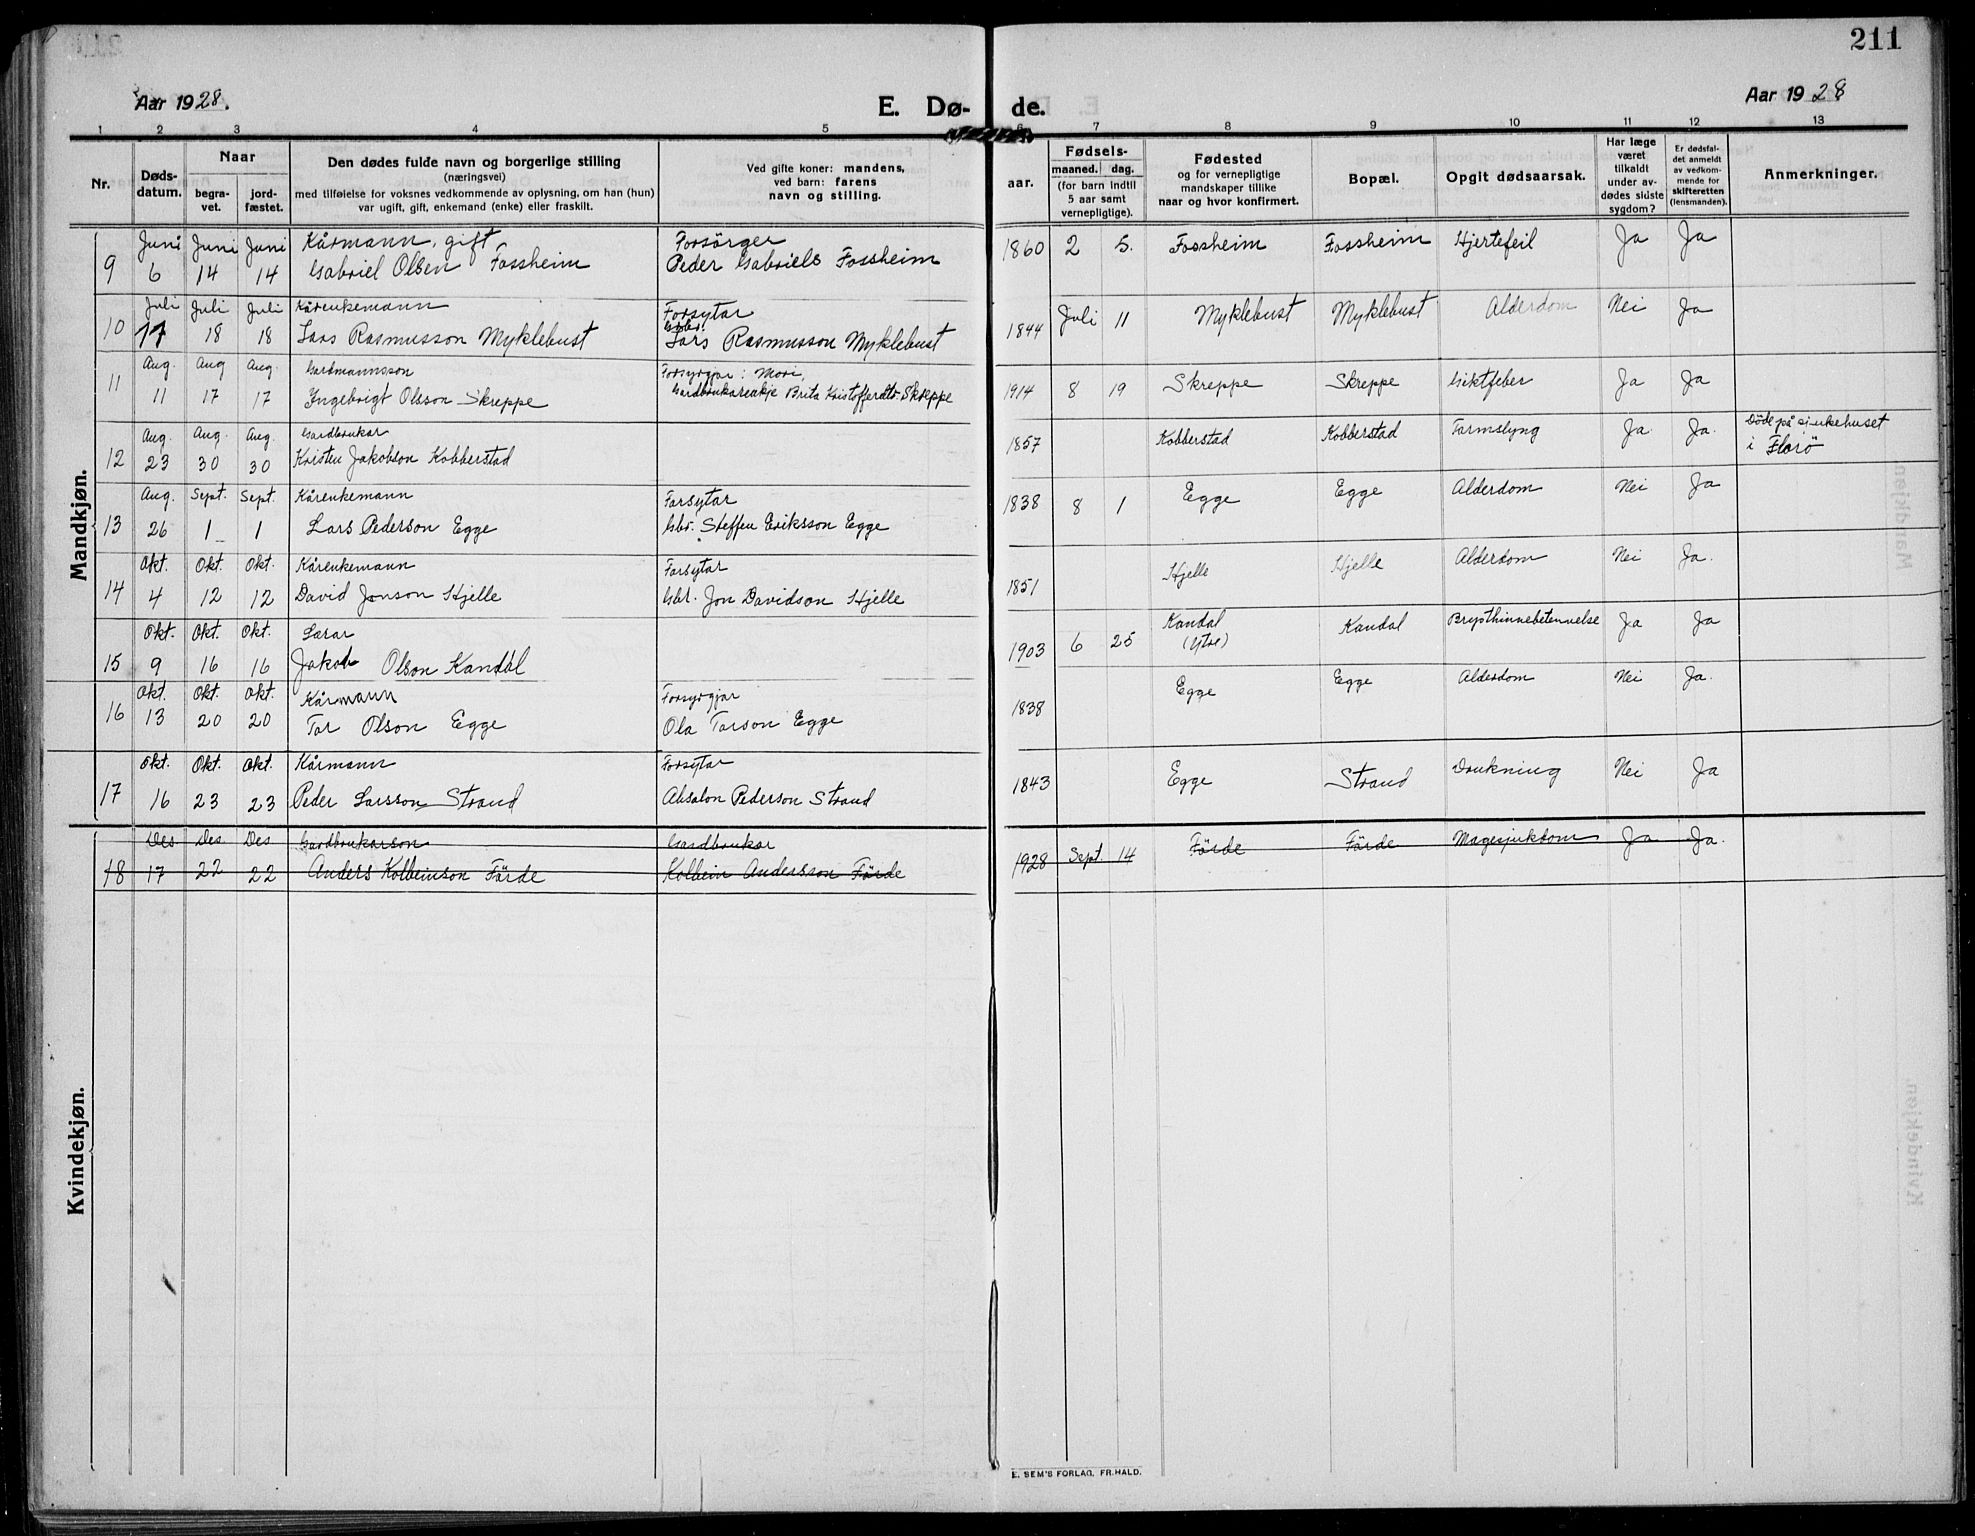 211
Aar 1928.
E. Dø- de.
Aar 1928
1 2 3 4 5 6 7 8 9 10 11 12 13
Nr.
Døds-
datum.
Naar
begra-
vet.
jord-
fæstet.
Den dødes fulde navn og borgerlige stilling
(næringsvei)
med tilføielse for voksnes vedkommende av oplysning, om han (hun)
var ugift, gift, enkemand (enke) eller fraskilt.
Ved gifte koner: mandens,
ved barn: farens
navn og stilling.
Fødsels-
aar.
maaned. dag.
(for barn indtil
5 aar samt
vernepligtige).
Fødested
og for vernepligtige
mandskaper tillike
naar og hvor konfirmert.
Bopæl.
Opgit dødsaarsak.
Har læge
været
tilkaldt
under av-
dødes sidste
sygdom?
Er dødsfal-
det anmeldt
av vedkom-
mende for
skifteretten
(lensmanden).
Anmerkninger.
Mandkjøn.
Juni Juni Juni Kårmann, gift Forsörger
9 6 14 14 Gabriel Olsen Fossheim Peder Gabriels Fossheim 1860 2 5. Fossheim Fossheim Hjertefeil Ja Ja
Juli Juli Juli Kårenkemann Forsytar
10 17 18 18 Lars Rasmusson Myklebust Gbr. Lars Rasmusson Myklebust 1844 Juli 11 Myklebust Myklebust Alderdom Nei Ja
Aug. Aug Aug. Gardmannsson Forsyrgjar: Mori,
11 11 17 17 Ingebrigt Olsson Skreppe Gardbrukarenkje Brita Kristofferdtr. Skreppe 1914 8 19 Skreppe Skreppe Giktfeber Ja Ja
Aug. Aug. Aug. Gardbrukar
12 23 30 30 Kristen Jakobson Kobberstad 1857 Kobberstad Kobberstad Tarmslyng Ja Ja. Döde på sjukehuset
i Florö
Aug. Sept. Sept. Kårenkemann Forsytar
13 26 1 1 Lars Pederson Egge Gbr. Steffen Eriksson Egge 1838 8 1 Egge Egge Alderdom Nei Ja
Okt. Okt. Okt. Kårenkemann Forsytar
14 4 12 12 David Jonson Hjelle Gbr. Jon Davidson Hjelle 1851 Hjelle Hjelle Alderdom Nei Ja.
Okt. Okt. Okt. Lærar
15 9 16 16 Jakob Olson Kandal 1903 6 25 Kandal (Ytre) Kandal Brysthinnebetennelse Ja Ja
Okt. Okt. Okt. Kårmann Forsyrgjar
16 13 20 20 Tor Olson Egge Ola Torson Egge 1838 Egge Egge Alderdom Nei Ja.
Okt. Okt. Okt. Kårmann Forsytar
17 16 23 23 Peder Larsson Strand Absalon Pederson Strand 1843 Egge Strand Drukning Nei Ja
Des Des Des Gardbrukarson Gardbrukar
18 17 22 22 Anders Kolbeinson Förde Kolbein Andersson Förde 1928 Sept. 14 Förde Förde Magesjukdom Ja Ja.
Kvindekjøn.
E. SEM'S FORLAG, FR.HALD.